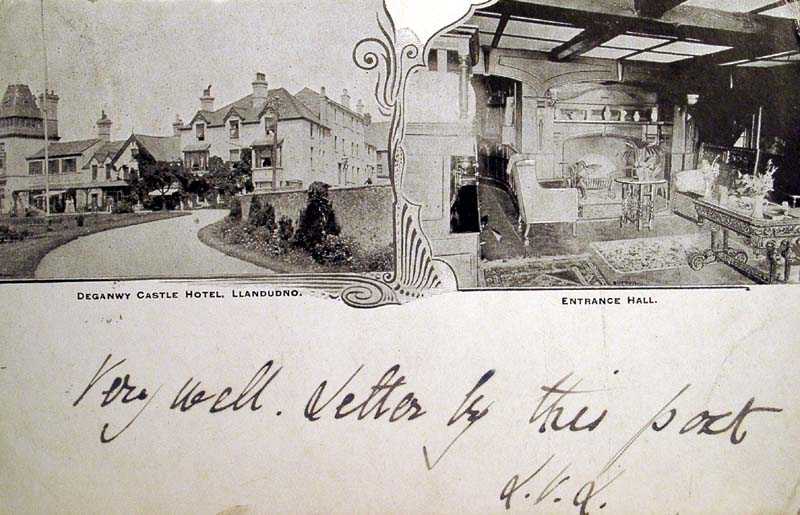 DEGANWY CASTLE HOTEL, LLANDUDNO.
ENTRANCE HALL.
Very well. Letter by this post
L.V.L.